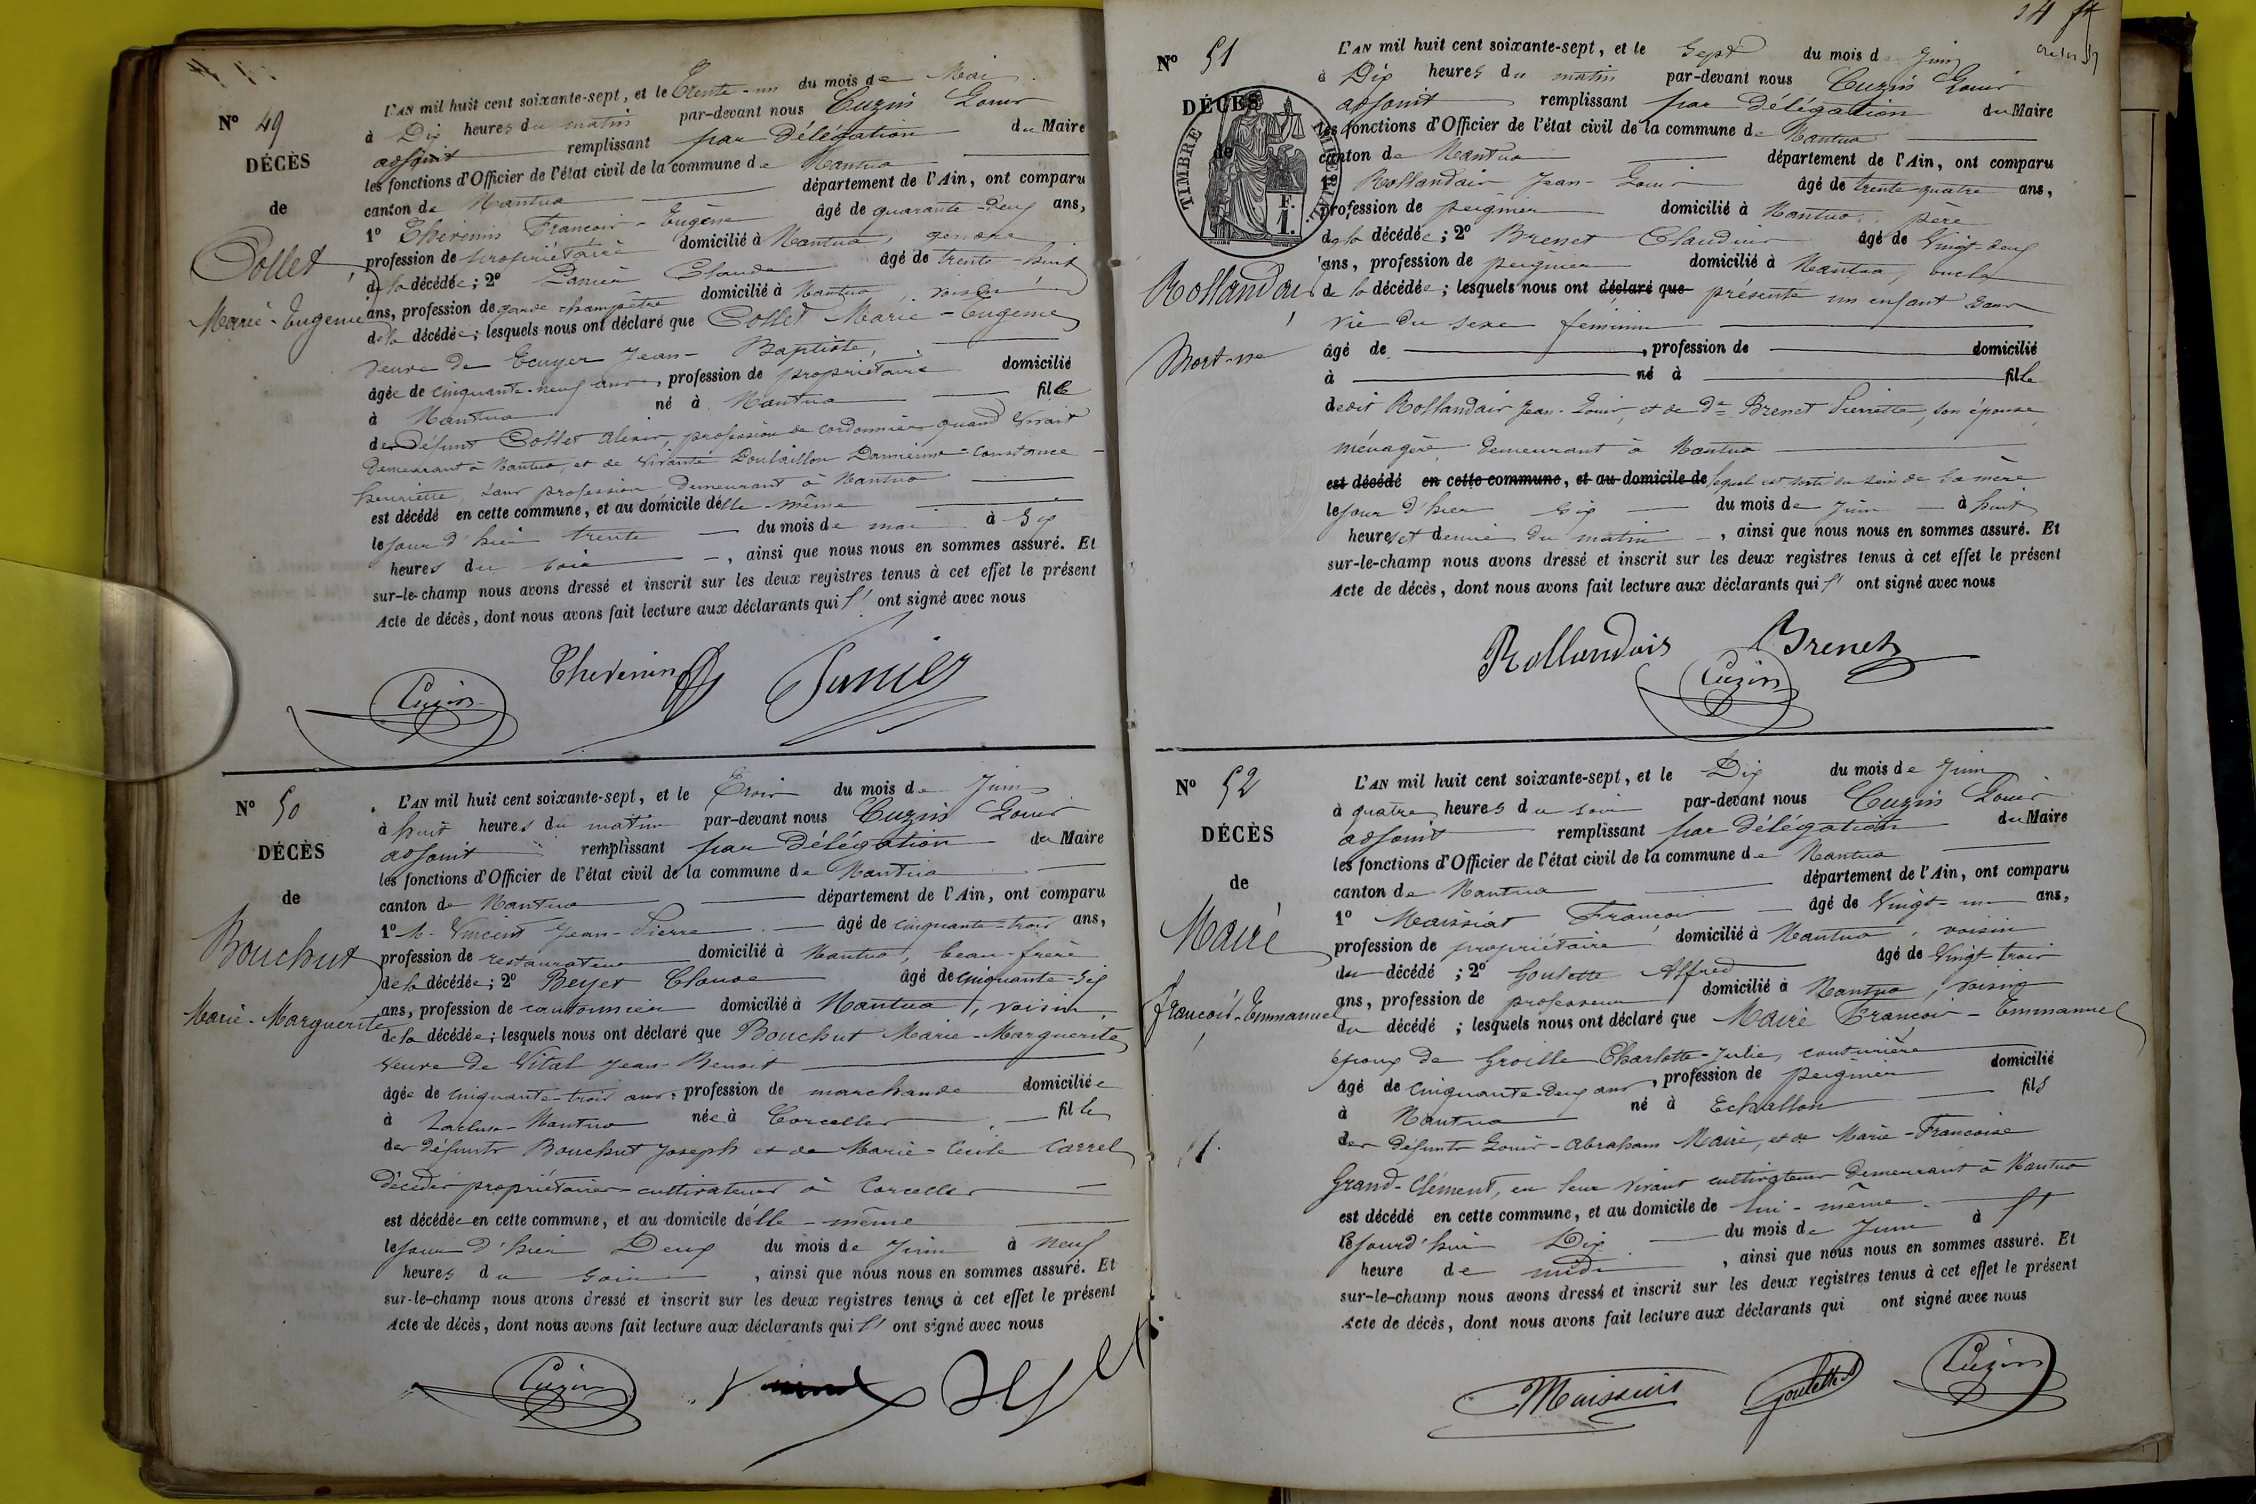 N° 49
DÉCÈS
de
Collet
Marie-Eugénie
L'AN mil huit cent soixante-sept, et le Trente-un du mois de Mai
à Dix heures du matin par-devant nous Cuzin Louis
adjoint remplissant par Délégation du Maire
les fonctions d'Officier de l'état civil de la commune de Nantua
canton de Nantua département de l'Ain, ont comparu
1° Thévenin François-Eugène âgé de quarante-deux ans,
profession de propriétaire domicilié à Nantua, gendre
de la décédée; 2° Claude âgé de trente-huit
ans, profession de garde-champêtre domicilié à Nantua, voisin
de la décédée; lesquels nous ont déclaré que Collet Marie-Eugénie
veuve de Ecuyer Jean-Baptiste,
âgée de cinquante-neuf ans, profession de propriétaire domicilié
à Nantua né à Nantua fille
de Défunt Collet Alexis, profession de cordonnier quand vivait
Demeurant à Nantua, et de vivante Constance
henriette, sans profession Demeurant à Nantua
est décédé en cette commune, et au domicile d'elle-même
le jour d'hier trente du mois de mai à Six
heures du soir, ainsi que nous nous en sommes assuré. Et
sur-le-champ nous avons dressé et inscrit sur les deux registres tenus à cet effet le présent
Acte de décès, dont nous avons fait lecture aux déclarants qui l' ont signé avec nous
Cuzin Thévenin
N° 50
DÉCÈS
de
Bouchut
Marie-Marguerite
L'AN mil huit cent soixante-sept, et le Trois du mois de Juin
à huit heures du matin par-devant nous Cuzin Louis
adjoint remplissant par Délégation du Maire
les fonctions d'Officier de l'état civil de la commune de Nantua
canton de Nantua département de l'Ain, ont comparu
1° M. Vincent Jean-Pierre âgé de cinquante-trois ans,
profession de restaurateur domicilié à Nantua, beau-frère
de la décédée; 2° Beyet Claude âgé de cinquante-six
ans, profession de cantonnier domicilié à Nantua, voisin,
de la décédée; lesquels nous ont déclaré que Bouchut Marie-Marguerite
veuve de Vital Jean-Benoit
âgée de cinquante-trois ans, profession de marchande domiciliée
à Lacluse-Nantua née à Corcelles fille
des défunts Bouchut Joseph et de Marie-Cécile Carrel
Décédés propriétaires-cultivateurs à Corcelles
est décédée en cette commune, et au domicile d'elle-même
le jour d'hier Deux du mois de Juin à neuf
heures du soir, ainsi que nous nous en sommes assuré. Et
sur-le-champ nous avons dressé et inscrit sur les deux registres tenus à cet effet le présent
Acte de décès, dont nous avons fait lecture aux déclarants qui l' ont signé avec nous
Cuzin
24
N° 51
DÉCÈS
de
TIMBRE IMPÉRIAL
F.
1.
Rollandais
Mort-né
L'AN mil huit cent soixante-sept, et le Sept du mois de Juin
à Dix heures du matin par-devant nous Cuzin Louis
adjoint remplissant par Délégation du Maire
les fonctions d'Officier de l'état civil de la commune de Nantua
canton de Nantua département de l'Ain, ont comparu
1° Rollandais Jean-Louis âgé de trente-quatre ans,
profession de peignier domicilié à Nantua, père
de la décédée; 2° Brenet Claudius âgé de Vingt-deux
ans, profession de peignier domicilié à Nantua, oncle
de la décédée; lesquels nous ont déclaré que présenté un enfant sans
vie du sexe féminin
âgé de , profession de domicilié
à né à fille
dudit Rollandais Jean-Louis, et de De Brenet Pierrette, son épouse,
ménagère Demeurant à Nantua
est décédé en cette commune, et au domicile de lequel est sorti du sein de sa mère
le jour d'hier Six du mois de Juin à huit
heures et demie du matin, ainsi que nous nous en sommes assuré. Et
sur-le-champ nous avons dressé et inscrit sur les deux registres tenus à cet effet le présent
Acte de décès, dont nous avons fait lecture aux déclarants qui l' ont signé avec nous
Rollandais Brenet
Cuzin
N° 52
DÉCÈS
de
Maire
François-Emmanuel
L'AN mil huit cent soixante-sept, et le Dix du mois de Juin
à quatre heures du soir par-devant nous Cuzin Louis
adjoint remplissant par délégation du Maire
les fonctions d'Officier de l'état civil de la commune de Nantua
canton de Nantua département de l'Ain, ont comparu
1° Maissiat François âgé de Vingt-un ans,
profession de propriétaire domicilié à Nantua, voisin
du décédé; 2° Goulette Alfred âgé de Vingt-trois
ans, profession de professeur domicilié à Nantua, voisin
du décédé; lesquels nous ont déclaré que Maire François-Emmanuel
époux de Groille Charlotte-Julie, couturière
âgé de cinquante-deux ans, profession de peignier domicilié
à Nantua né à Echallon fils
des défunts Louis-Abraham Maire, et de Marie-Françoise
Grand-Clément, en leur vivant cultivateurs Demeurant à Nantua
est décédé en cette commune, et au domicile de lui-même
le jourd'hui Dix du mois de Juin à
heure de midi, ainsi que nous nous en sommes assuré. Et
sur-le-champ nous avons dressé et inscrit sur les deux registres tenus à cet effet le présent
Acte de décès, dont nous avons fait lecture aux déclarants qui ont signé avec nous
Maissiat Goulette Cuzin